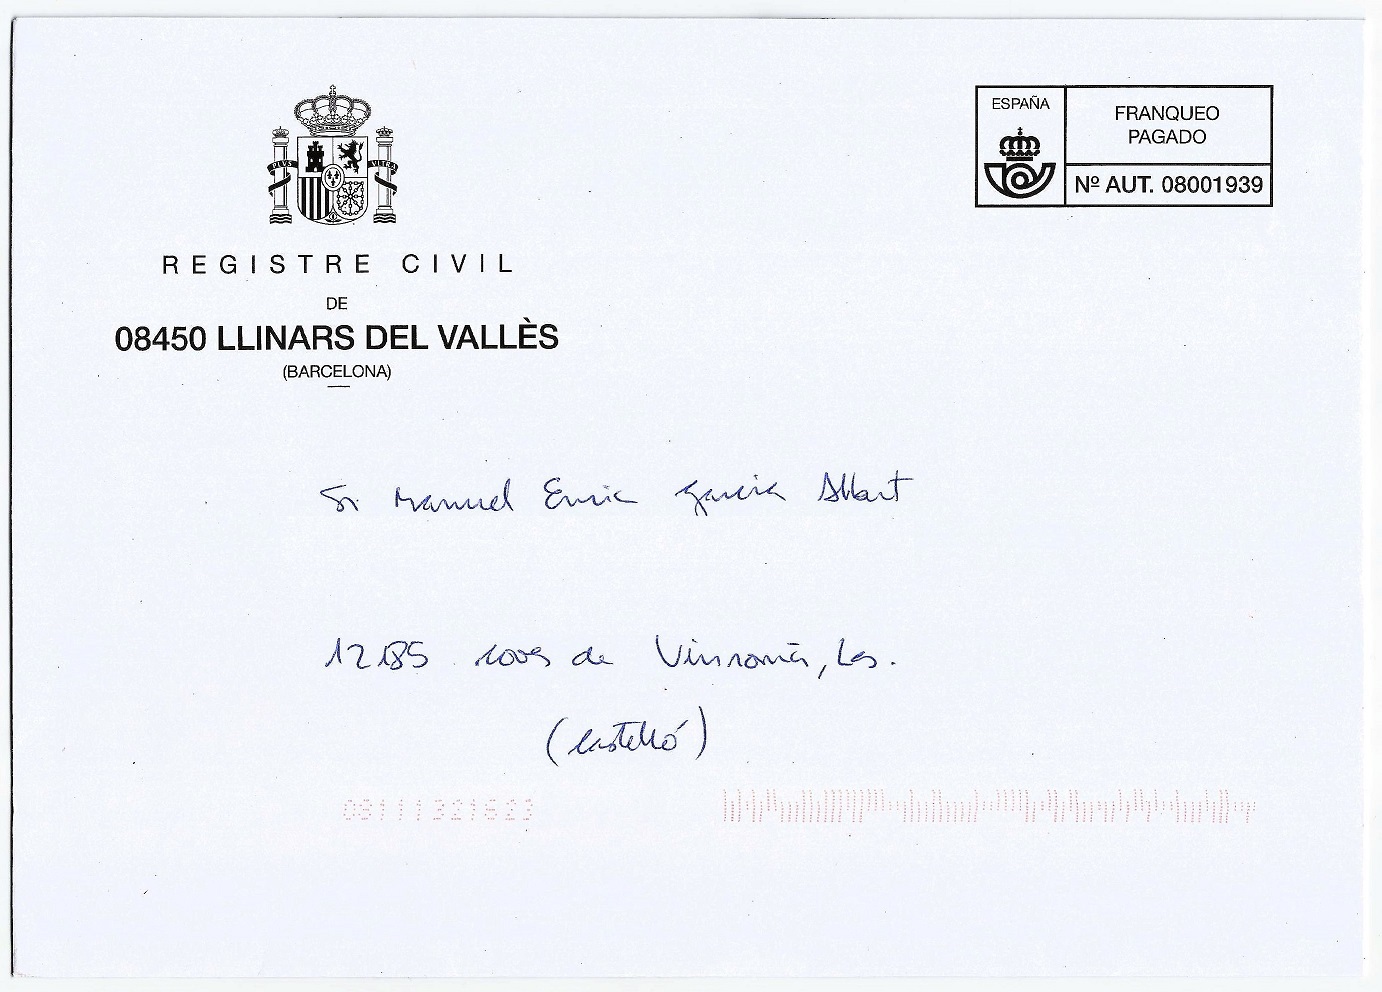 PLVS VLTRA
ESPAÑA
FRANQUEO
PAGADO
Nº AUT. 08001939
REGISTRE CIVIL
DE
08450 LLINARS DEL VALLÈS
(BARCELONA)
Sr Manuel Enric Garcia Albert
12185 coves de Vinromà, Les.
(Castelló)
08111321623